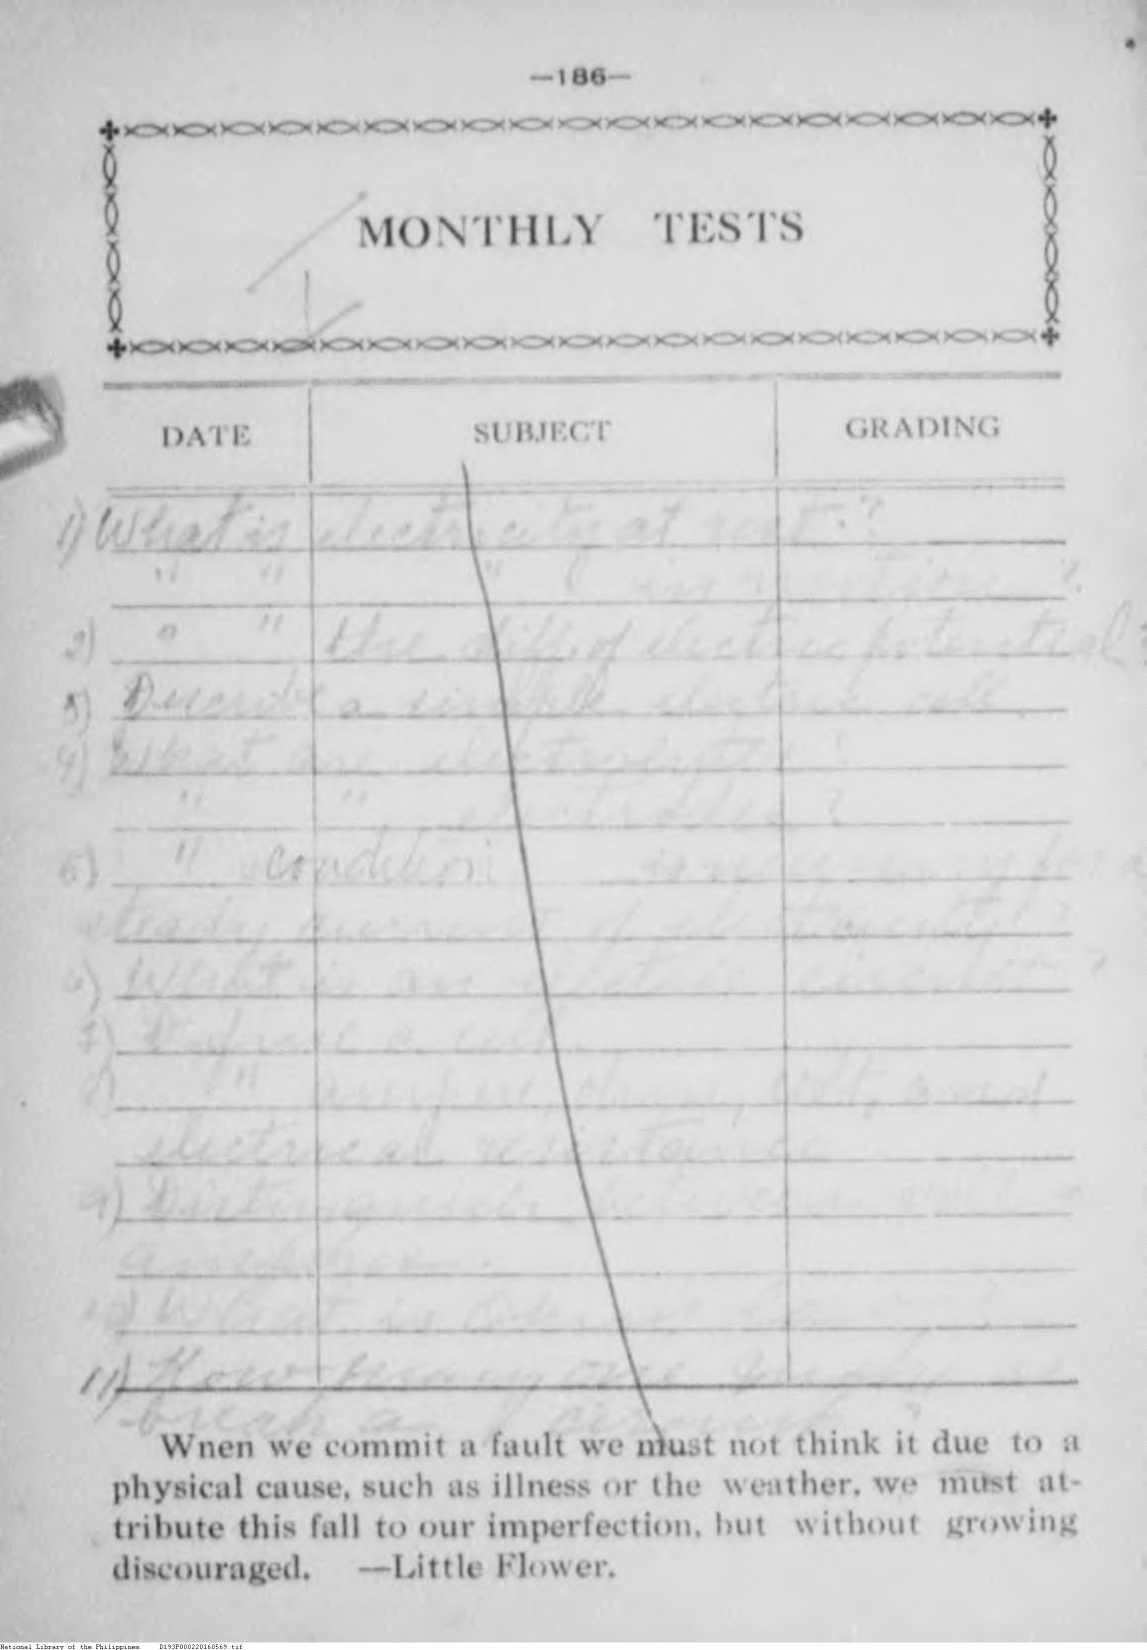 —186—
MONTHLY TESTS
DATE SUBJECT GRADING
1) What is electricity at rest?
" " " in motion ?
2) " " the diff. of electric potential ?
3) Describe a simple electric cell.
4) What are electrolytes ?
" " electrodes ?
5) " condition is necessary for a
steady current of electricity ?
6) What is an electric circuit ?
7) Define a cell
8) " ampere, ohm, volt, and
electrical resistance
9) Distinguish between
10) What is Ohm's
11) How many are
break a circuit ?
Wnen we commit a fault we must not think it due to a
physical cause, such as illness or the weather, we must at-
tribute this fall to our imperfection, but without growing
discouraged. —Little Flower.
National Library of the Philippines D193P000220160569.tif